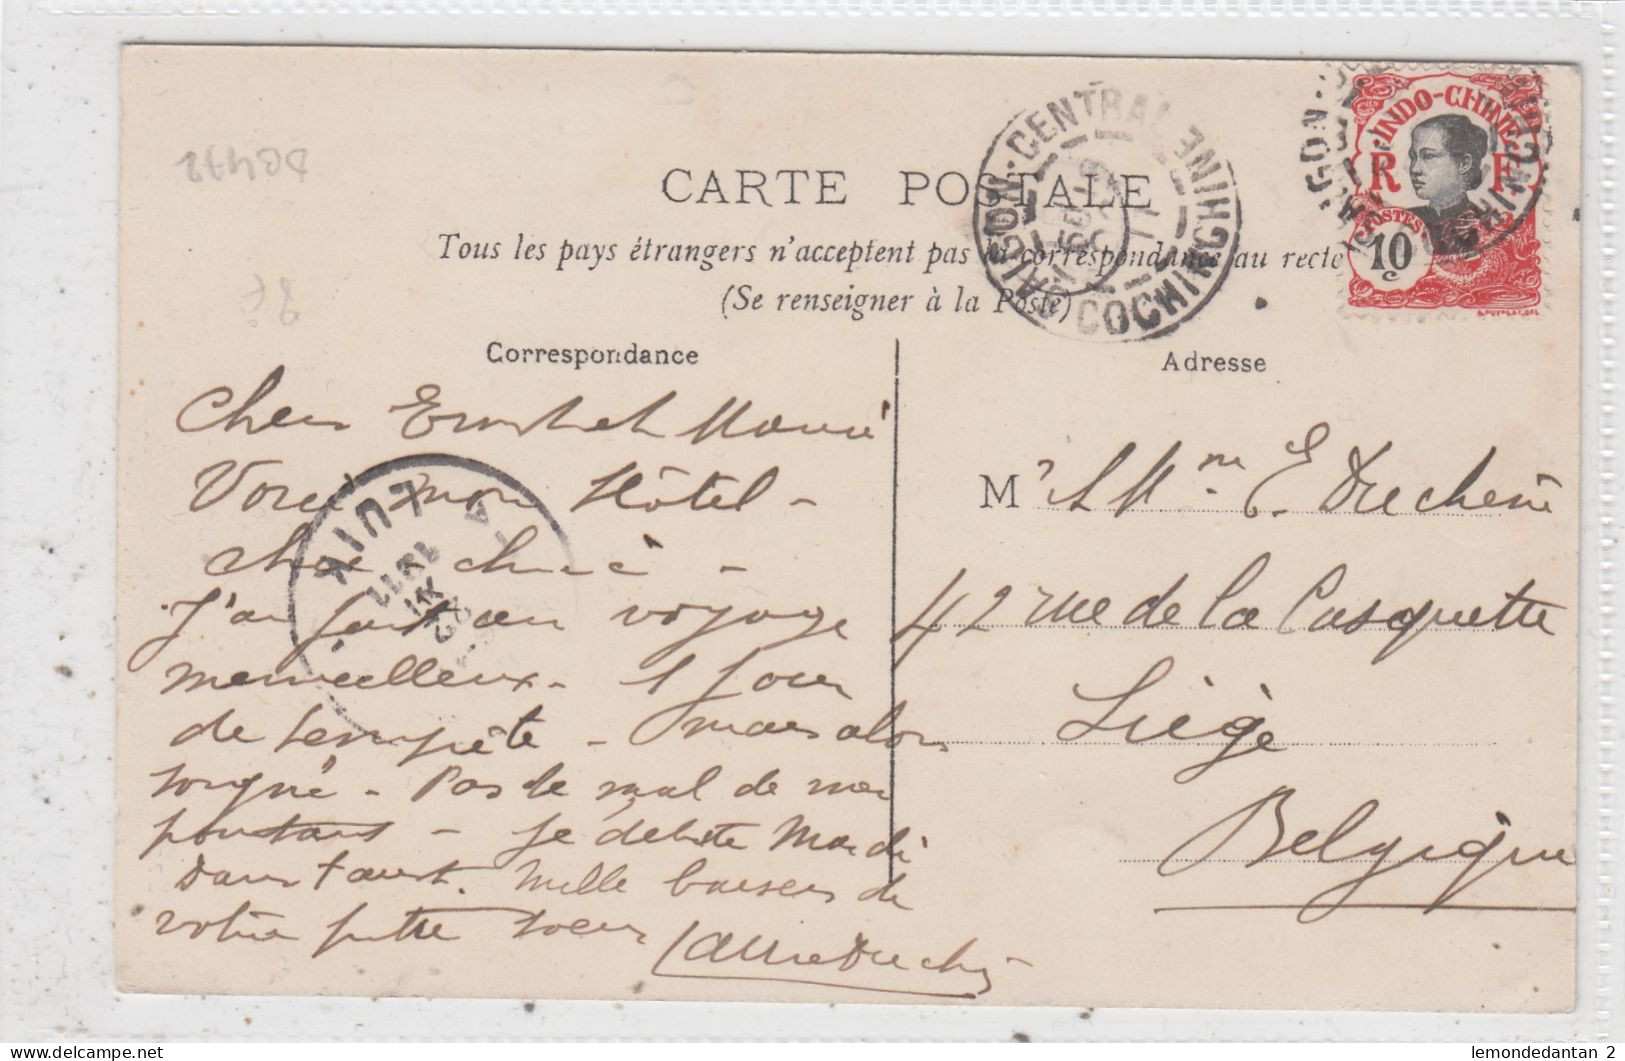 CARTE POSTALE
Tous les pays étrangers n'acceptent pas la correspondance au recto
(Se renseigner à la Poste)
SAIGON-CENTRAL
COCHINCHINE
INDO-CHINE
R F
POSTES
10
c
A. PUYPLAT. DEL
SAIGON
Correspondance
Adresse
Chers Ernest et Marie
Voici mon Hôtel -
J'ai fait un voyage
merveilleux - 1 jour
de tempête - mais alors
soigné - Pas de mal de mer
pourtant - Je débute Mardi
dans Faust. Mille baisers de
votre petite soeur
LUIK
1911
M r & Mme E. Duchêne
42 rue de la Casquette
Liège
Belgique
DG472
lemondedantan 2